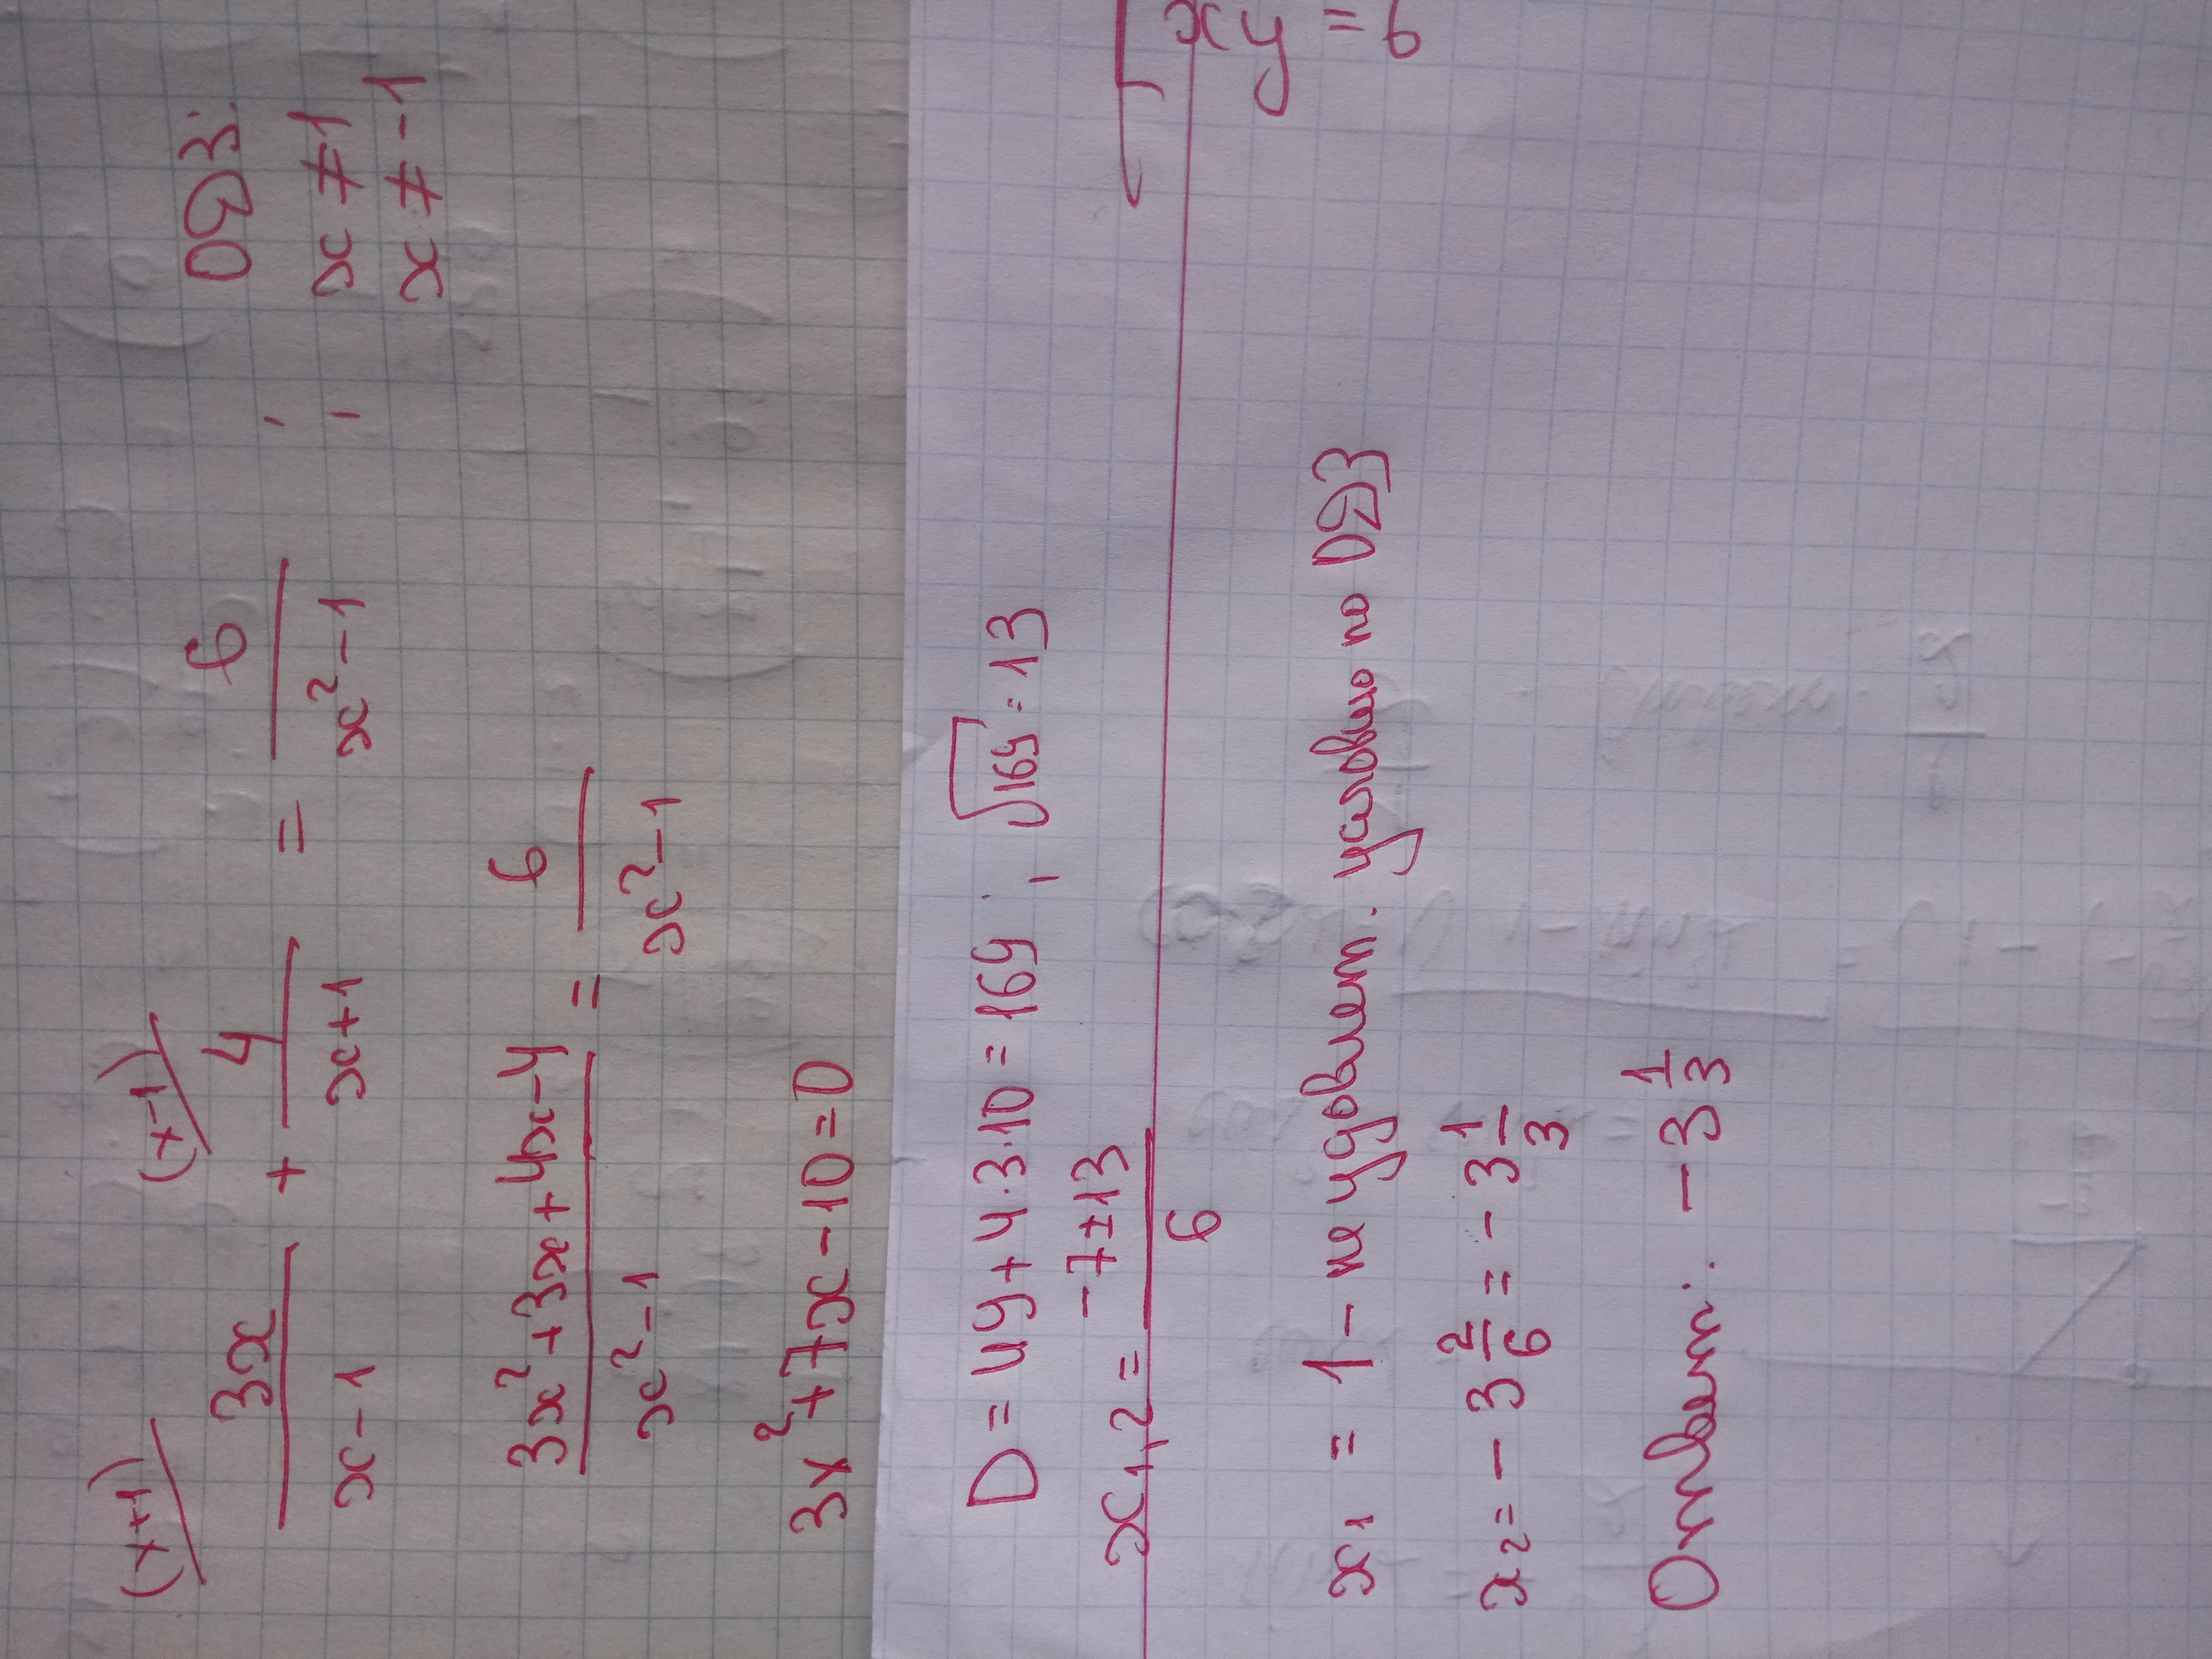 (x+1) (x-1)
3x/(x-1) + 4/(x+1) = 6/(x²-1) ; ОДЗ:
x ≠ 1
x ≠ -1
(3x²+3x+4x-4)/(x²-1) = 6/(x²-1)
3x²+7x-10=0
D = 49+4·3·10 = 169 ; √169 = 13
x₁,₂ = (-7±13)/6
xy = 6
x₁ = 1 - не удовлет. условию по ОДЗ
x₂ = -3 2/6 = -3 1/3
Ответ: -3 1/3